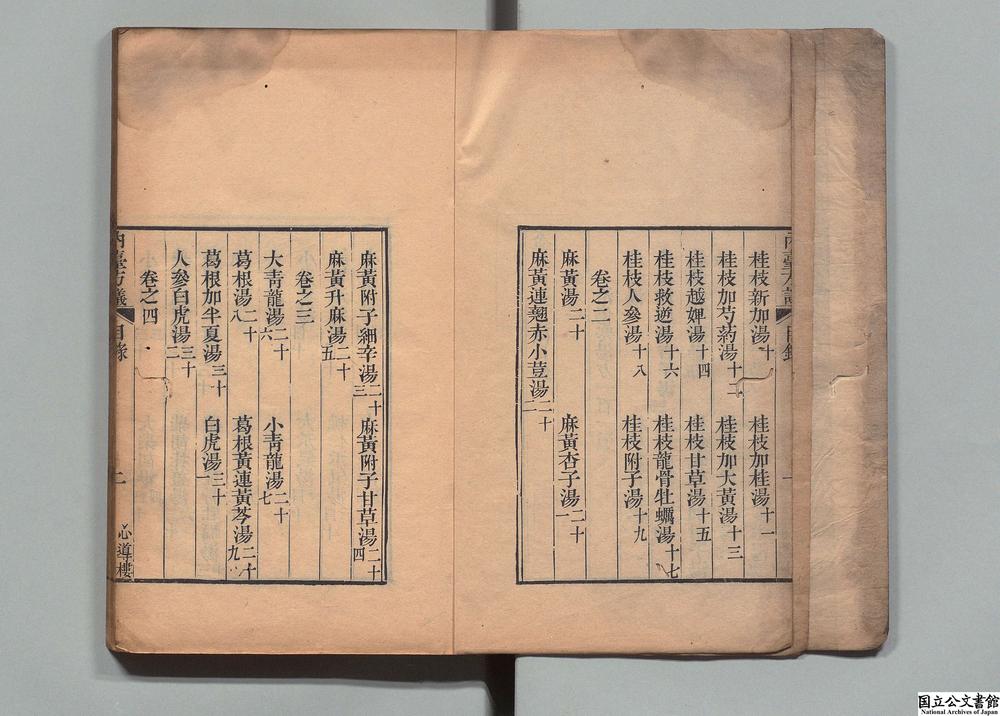 桂枝新加湯十　桂枝加桂湯十一
桂枝加芍藥湯十二　桂枝加大黃湯十三
桂枝越婢湯十四　桂枝甘草湯十五
桂枝救逆湯十六　桂枝龍骨牡蠣湯十七
桂枝人參湯十八　桂枝附子湯十九
卷之二
麻黃湯二十　麻黃杏子湯二十一
麻黃連翹赤小荳湯二十二
麻黃附子細辛湯二十三　麻黃附子甘草湯二十四
麻黃升麻湯二十五
卷之三
大青龍湯二十六　小青龍湯二十七
葛根湯二十八　葛根黃連黃芩湯二十九
葛根加半夏湯三十　白虎湯三十一
人參白虎湯三十二
卷之四
內臺方議　目錄　二　心導樓
国立公文書館
National Archives of Japan